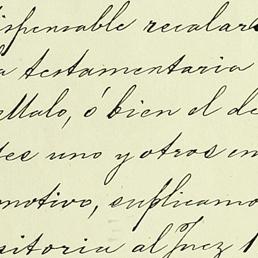 ispensable recalar
a testamentaria
Malo, ó bien el de
es uno y otros en
motivo, suplicamo
sitoria al Juez 1